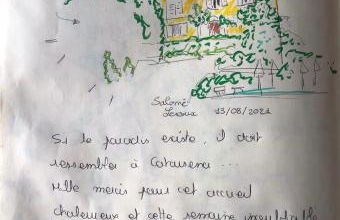 Salomé
Leroux 13/08/2021
Si le paradis existe, il doit
ressembler à
Mille mercis pour cet accueil
chaleureux et cette semaine inoubliable